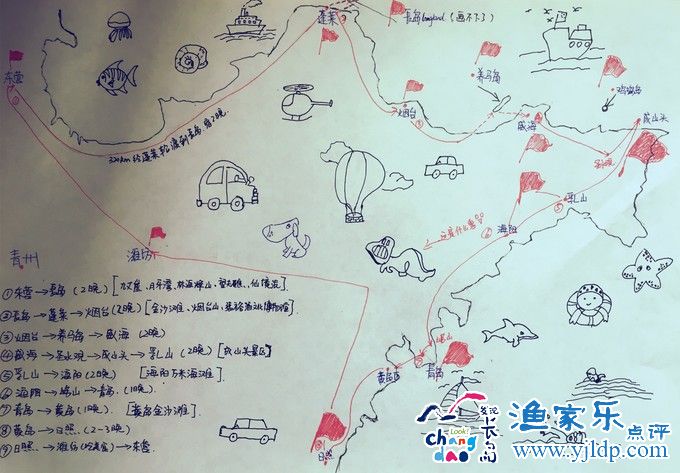 蓬莱
长岛 Island (画不下了)
养马岛
鸡鸣岛
东营
烟台
威海
成山头
320km 经蓬莱轮渡到长岛,宿2晚.
圣水观
乳山
海阳
这是什么鬼??
青州
潍坊
①东营→长岛(2晚)
②长岛→蓬莱→烟台(2晚)[金沙滩、烟台山、张裕酒文化博物馆].
③烟台→养马岛→威海(2晚)
④威海→圣水观→成山头→乳山(2晚)[成山头景区]
⑤乳山→海阳(2晚)[海阳万米海滩]
⑥海阳→崂山→青岛.(1晚)
⑦青岛→黄岛(1晚).[黄岛金沙滩].
⑧黄岛→日照(2-3晚)
⑨日照→潍坊(吃美食)→东营
崂山
青岛
黄岛
日照
Look!
chang dao
发现长岛
渔家乐 点评
www.yjldp.com